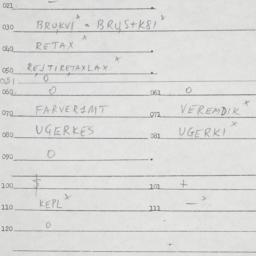 021
030 BRUKVI² = BRUS+K8I²
040 RETAX ˣ
050 REJTIRETAXLAX ˣ
051 0
060 0 061 0
070 FARVER1MT 071 VEREMDIK ˣ
080 UGERKES 081 UGERKI ˣ
090 0
100 $ 101 +
110 KEPL² 111 —²
120 0